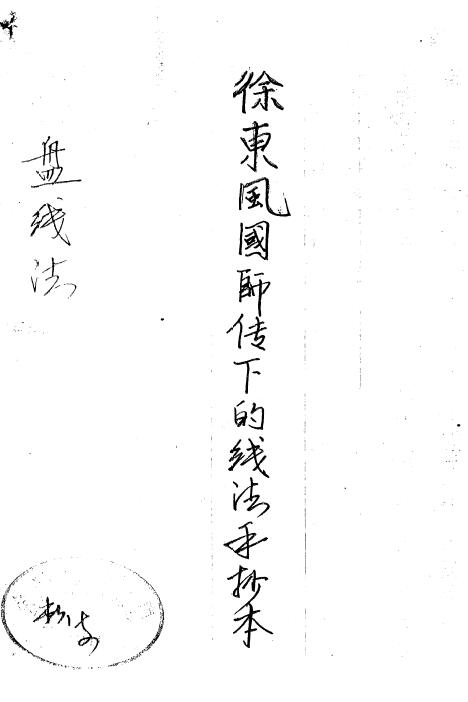 徐東風國師传下的线法手抄本
盘线法